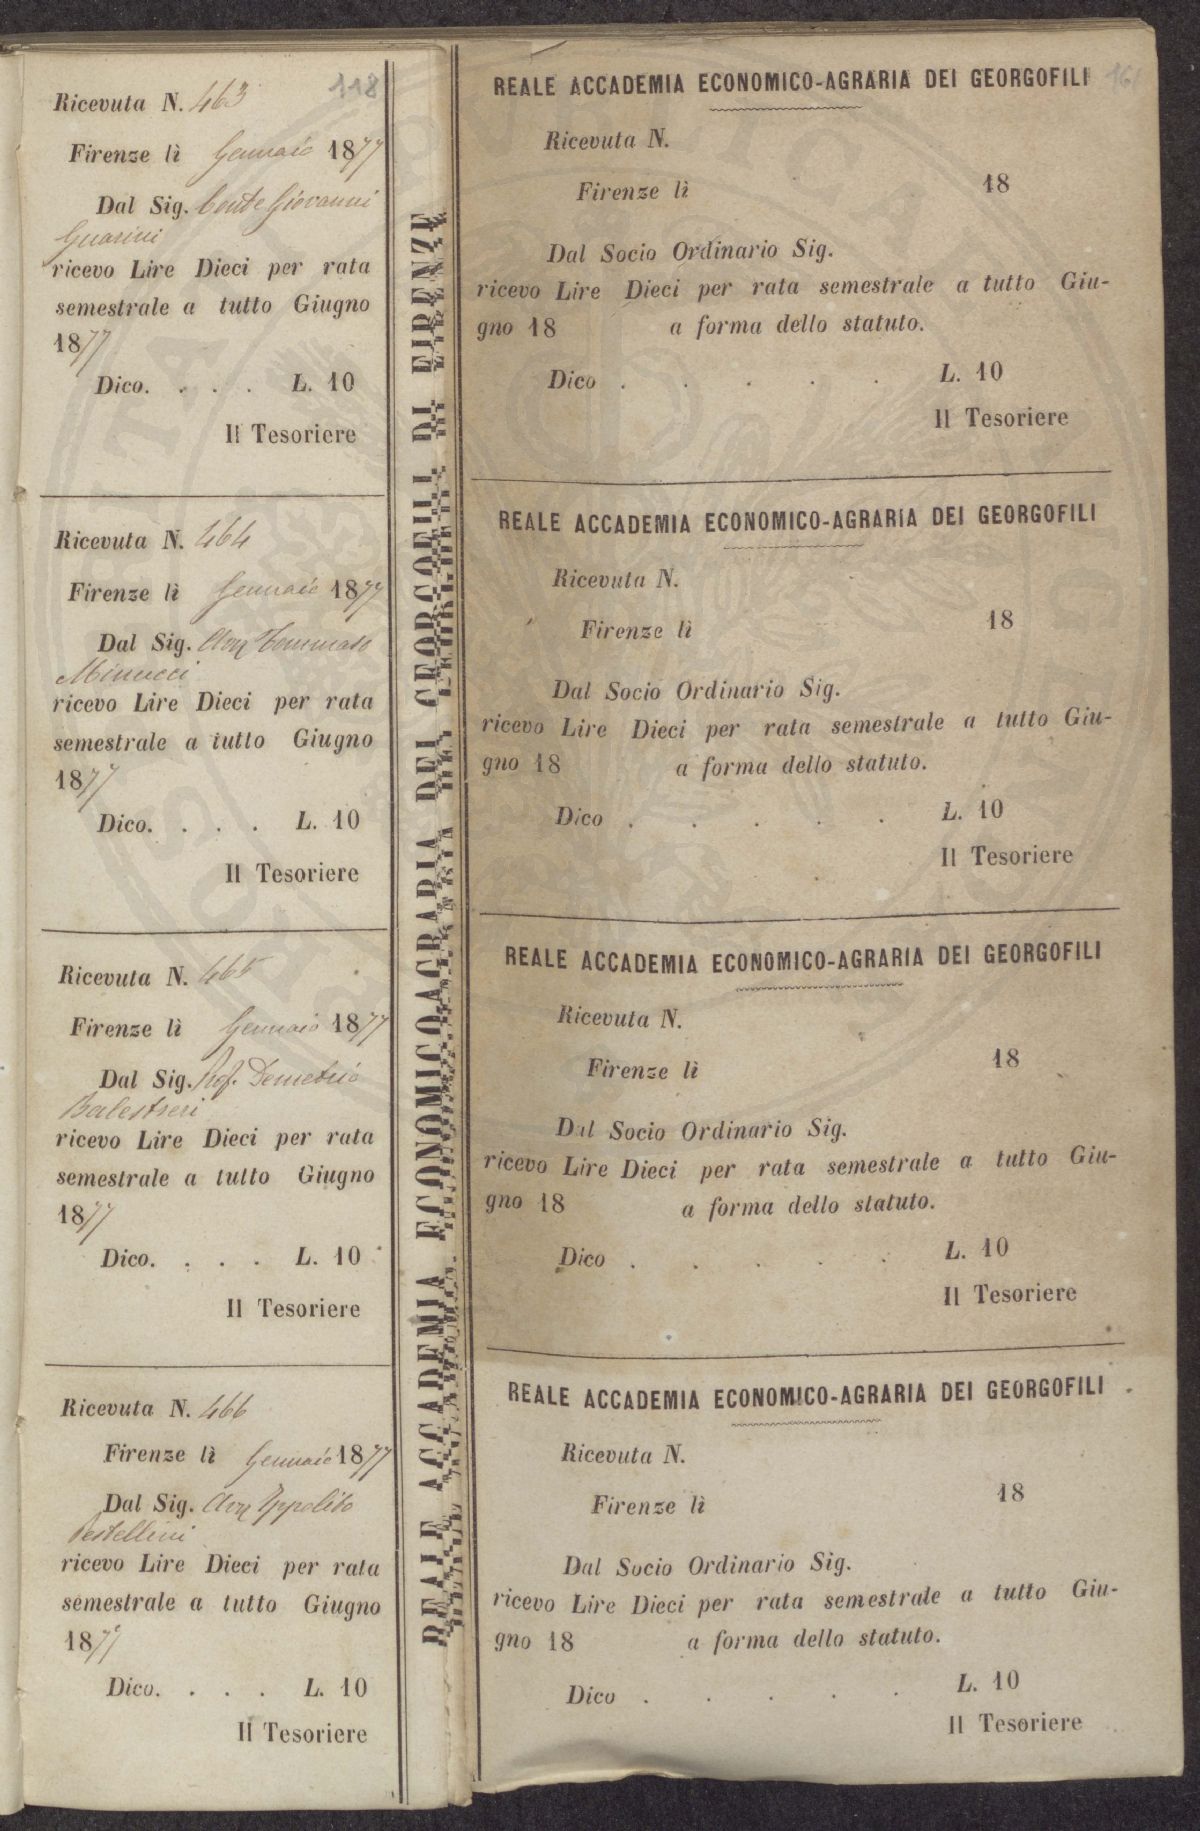 118
Ricevuta N. 463
Firenze lì Gennaio 1877
Dal Sig. Conte Giovanni
Guarini
ricevo Lire Dieci per rata
semestrale a tutto Giugno
1877
Dico. . . . L. 10
Il Tesoriere
Ricevuta N. 464
Firenze lì Gennaio 1877
Dal Sig. Avv Tommaso
Minucci
ricevo Lire Dieci per rata
semestrale a tutto Giugno
1877
Dico. . . . L. 10
Il Tesoriere
Ricevuta N. 465
Firenze lì Gennaio 1877
Dal Sig. Prof. Demetrio
Balestreri
ricevo Lire Dieci per rata
semestrale a tutto Giugno
1877
Dico. . . . L. 10
Il Tesoriere
Ricevuta N. 466
Firenze lì Gennaio 1877
Dal Sig. Avv Ippolito
Pestellini
ricevo Lire Dieci per rata
semestrale a tutto Giugno
1877
Dico. . . . L. 10
Il Tesoriere
REALE ACCADEMIA ECONOMICO AGRARIA DEI GEORGOFILI DI FIRENZE
REALE ACCADEMIA ECONOMICO-AGRARIA DEI GEORGOFILI
Ricevuta N.
Firenze lì 18
Dal Socio Ordinario Sig.
ricevo Lire Dieci per rata semestrale a tutto Giu-
gno 18 a forma dello statuto.
Dico . . . . . L. 10
Il Tesoriere
REALE ACCADEMIA ECONOMICO-AGRARIA DEI GEORGOFILI
Ricevuta N.
Firenze lì 18
Dal Socio Ordinario Sig.
ricevo Lire Dieci per rata semestrale a tutto Giu-
gno 18 a forma dello statuto.
Dico . . . . . L. 10
Il Tesoriere
REALE ACCADEMIA ECONOMICO-AGRARIA DEI GEORGOFILI
Ricevuta N.
Firenze lì 18
Dal Socio Ordinario Sig.
ricevo Lire Dieci per rata semestrale a tutto Giu-
gno 18 a forma dello statuto.
Dico . . . . . L. 10
Il Tesoriere
REALE ACCADEMIA ECONOMICO-AGRARIA DEI GEORGOFILI
Ricevuta N.
Firenze lì 18
Dal Socio Ordinario Sig.
ricevo Lire Dieci per rata semestrale a tutto Giu-
gno 18 a forma dello statuto.
Dico . . . . . L. 10
Il Tesoriere